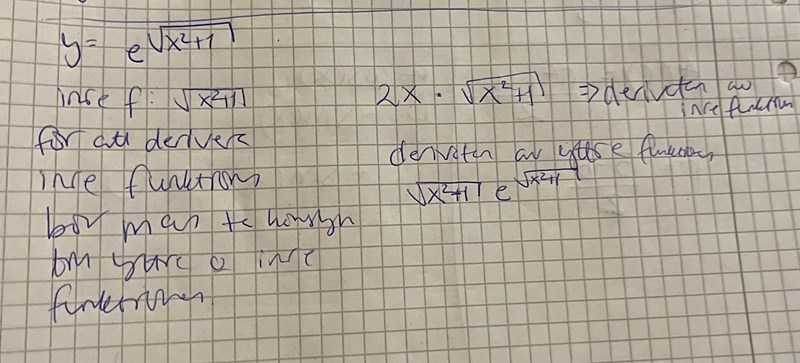 y = e^√(x²+1)
inre f: √(x²+1)
för att derivera
inre funktion
bör man ta hänsyn
om yttre o inre
funktionen
2x · √(x²+1) ⇒ derivatan av
inre funktion
derivatan av yttre funktion
√(x²+1) e^√(x²+1)